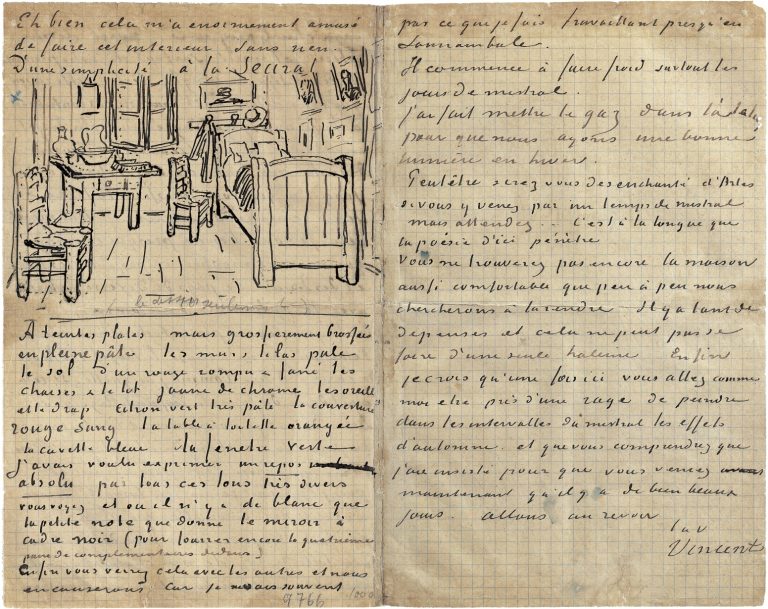 Eh bien cela m'a enormement amusé
de faire cet interieur sans rien.
D'une simplicité à la Seurat
A teintes plates mais grossierement brossées
en pleine pâte les murs lilas pale
le sol d'un rouge rompu & fané les
chaises & le lit jaune de chrome les oreillers
et le drap citron vert très pâle la couverture
rouge sang la table à toilette orangée
la cuvette bleue la fenetre verte
J'avais voulu exprimer un repos
absolu par tous ces tons très divers
vous voyez et ou il n'y a de blanc que
la petite note que donne le miroir à
cadre noir (pour fourrer encore la quatrième
paire de complementaires dedans)
Enfin vous verrez cela avec les autres et nous
en causerons car je ne sais souvent
9766
1000
pas ce que je fais travaillant presqu'en
somnambule.
Il commence à faire froid surtout les
jours de mistral.
J'ai fait mettre le gaz dans l'atelier
pour que nous ayons une bonne
lumière en hiver.
Peutêtre serez vous desenchanté d'Arles
si vous y venez par un temps de mistral
mais attendez.. C'est à la longue que
la poésie d'ici pénètre
Vous ne trouverez pas encore la maison
aussi comfortable que peu à peu nous
chercherons à la rendre Il y a tant de
depenses et cela ne peut pas se
faire d'une seule haleine Enfin
je crois qu'une fois ici vous allez comme
moi etre pris d'une rage de peindre
dans les intervalles du mistral les effets
d'automne. et que vous comprendrez que
j'aie insisté pour que vous veniez
maintenant qu'il y a de bien beaux
jours. allons au revoir
t à v
Vincent